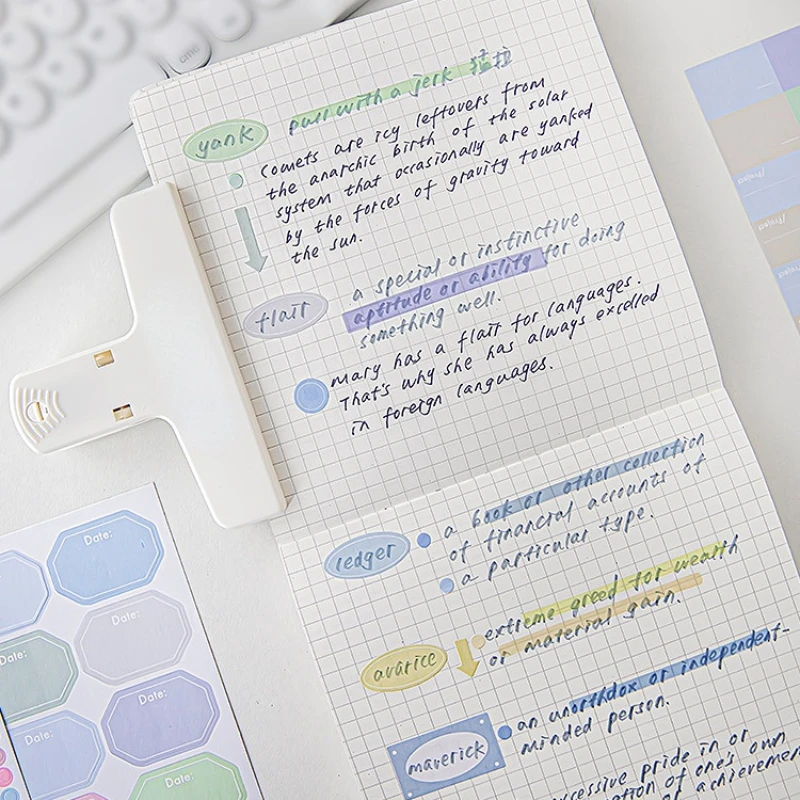 yank
pull with a jerk 猛拉
Comets are icy leftovers from
the anarchic birth of the solar
system that occasionally are yanked
by the forces of gravity toward
the sun.
flair
a special or instinctive
aptitude or ability for doing
something well.
Mary has a flair for languages.
That's why she has always excelled
in foreign languages.
ledger
a book or other collection
of financial accounts of
a particular type.
avarice
extreme greed for wealth
or material gain.
maverick
an unorthdox or independent-
minded person.
excessive pride in or
of one's own
or achievements
Date:
Date:
Date:
Date:
Date:
Date:
Project
Project
Project